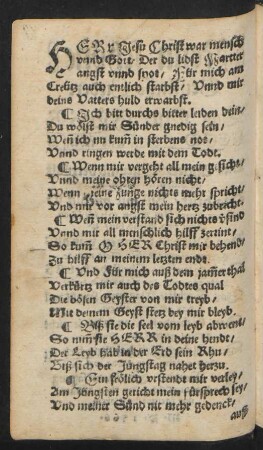 HERr Jesu Christ war mensch
vnnd Gott/ Der du lidst Martter
angst vnnd spot/ Für mich am
Creütz auch entlich starbst/ Vnnd mir
deins Vatters huld erwarbst.
¶ Ich bitt durchs bitter leiden dein/
Du wölst mir Sünder gnedig sein/
Weñ ich nu kum̃ in sterbens not/
Vnnd ringen werde mit dem Todt.
¶ Wenn mir vergeht all mein gsicht/
Vnnd meine ohren hören nicht/
Wenn meine zunge nichts meht spricht/
Vnd mir vor angst mein hertz zubricht.
¶ Weñ mein verstand sich nichts vsind
Vnnd mir all menschlich hilff zertint/
So kum̃ O HER Christ mir behend/
Zu hilff an meinem letzten ende.
¶ Vnd Für mich auß dem jam̃erthal
Verkürtz mir auch des Todtes qual
Die bösen Geyster von mir treyb/
Mit deinem Geyst stetz bey mir bleyb.
¶ Biß sie die seel vom leyb abwent/
So nim̃ sie HERR in deine hendt/
Der Leyb hab in der Erd sein Rhu/
Biß sich der Jüngstag nahet herzu.
¶ Ein frölich vrstende mir verley/
Am Jüngsten gericht mein fürsprech sey/
Vnd meiner Sünd nit mehr gedenck/
auß